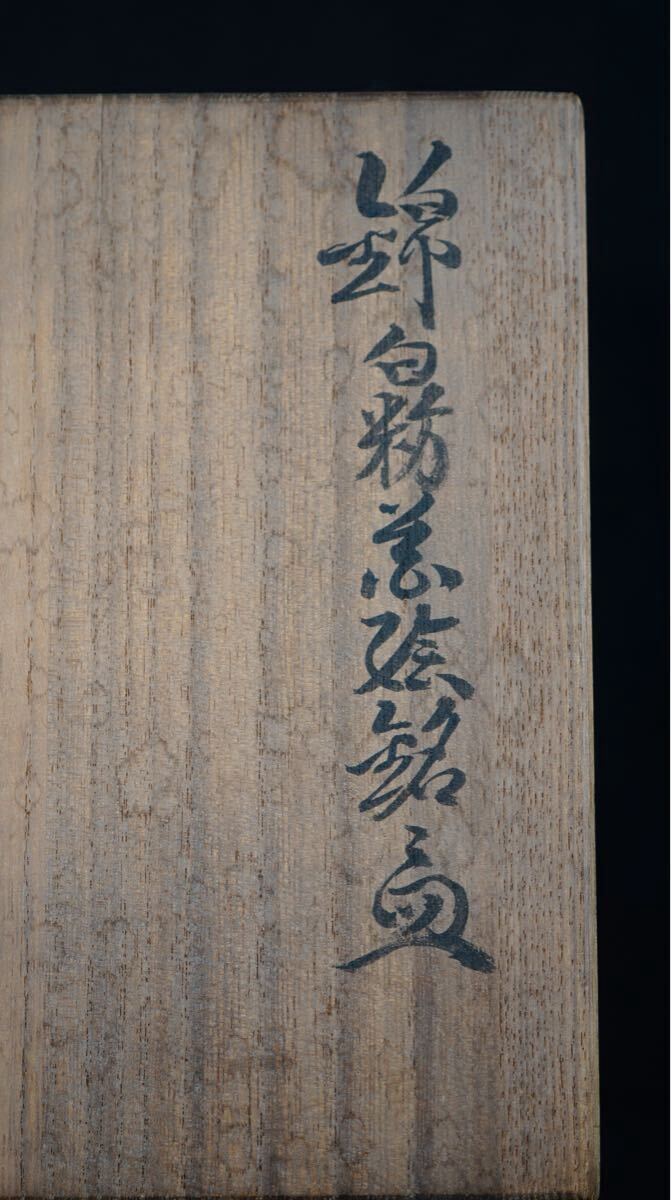 錦白粉花絵銘々皿